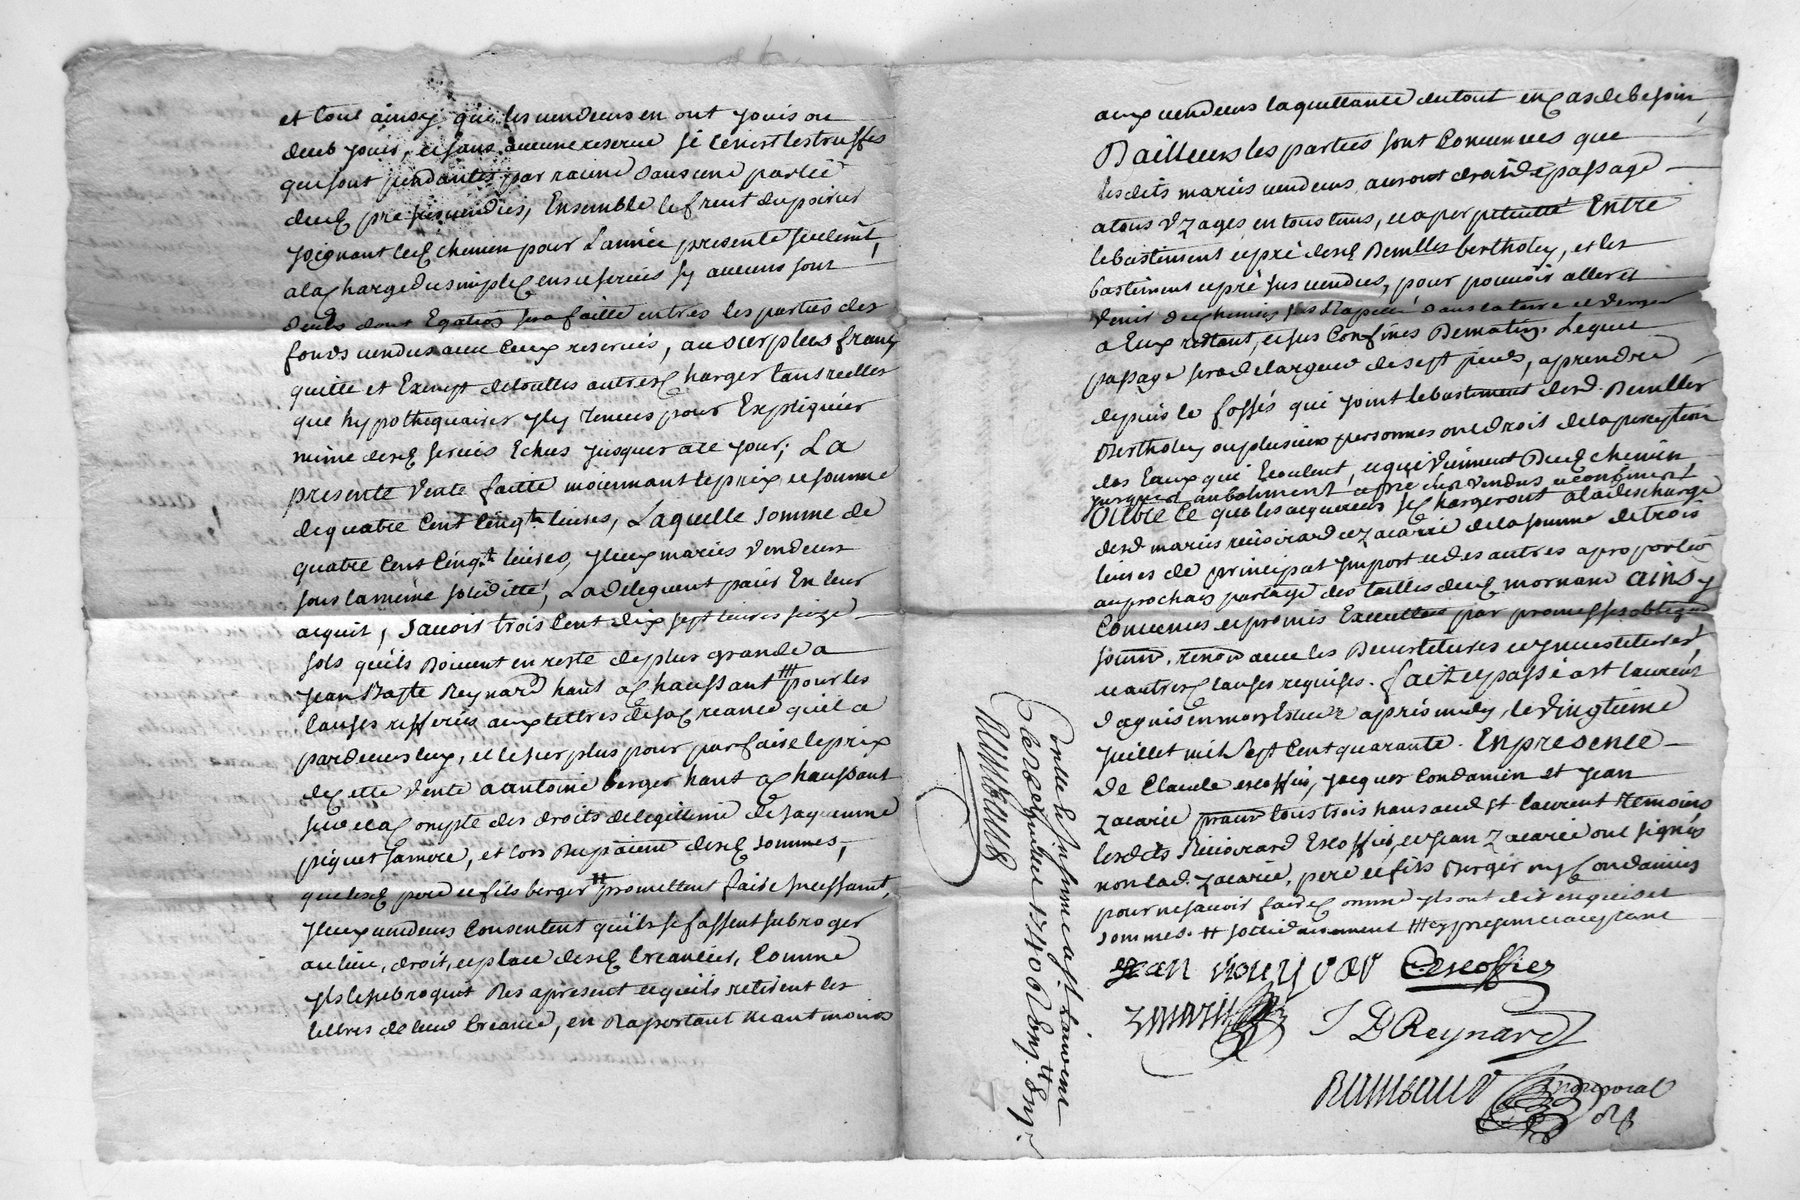 et tout ainsy que les vendeurs en ont jouis ou
deub jouir, et sans aucune reserve si ce n'est les truffes
qui sont pendantes par racine dans une partie
dud pré susvendus, Ensemble le fruit du poirier
joignant led chemin pour L'année presente seulem.t,
a la charge du simple cens et servis sy aucuns sont
deubs dont Egation sera faitte entre les parties des
fonds vendus avec Ceux reservés, au surplus franc
quitte et Exempt de touttes autres charges tans reelles
que hypothequaires yly tenues pour Expliquées
même desd servis Echus jusques a ce jour; La
presente vente faitte moiennant le prix et somme
de quatre Cent Cinq.te livres, Laquelle somme de
quatre Cent Cinq.te livres, yceux mariés vendeurs
sous la même soliditté, La deleguent paier En leur
acquit, Sçavoir trois Cent dix sept livres seize
sols qu'ils Doivent en reste de plus grande a
Jean Bap.te Reynard hant et chaussant ttt pour les
Causes refferées aux lettres de sa creance qu'il a
pardevers luy, et le surplus pour parfaire le prix
de cette vente a antoine berger hant et chaussant
sur et a compte des droits de legittime de jaquemine
piquet sa mere, et lors Du paiem.t desd sommes,
que lesd pere et fils berger tt promettent faire incessam.t,
yceux vendeurs Consentent qu'ils se fassent subroger
au lieu, droit, et place desd Creanciers, Comme
yls les subrogent Des apresent et qu'ils retirent les
lettres de leur Creance, en Raportant Neantmoins
aux vendeurs la quittance du tout en cas de besoin,
D'ailleurs les parties sont Convenues que
lesdits mariés vendeurs auront droit de passage
a tous Uzages en tous tems, et a perpetuitté Entre
le bastiment et pré desd Demlles bertholey, et les
bastiment et pré susvendus, pour pouvoir aller et
venir du chemin sus Rapellé dans la terre et verger
a Eux restant, et sus Confinés De matin. Lequel
passage sera de largeur de sept pieds, a prendre
depuis le fossés qui joint le bastiment desd. Demlles
Bertholey ou plusieurs personnes ont droit de la perception
des Eaux qui Ecoulent, et qui viennent Dud chemin
jusques au batiment, et pré sus vendus et confinés
Outre Ce que les acquereurs se chargeront a la descharge
desd mariés reviorard et zacarie de la somme de trois
livres de principal Import et des autres a proportion
au prochain partage des tailles dud mornand ainsy
Convenus et promis Executter par promesses oblig.on
soumis.on renon.on avec les Devestitures et ynvestitures,
et autres clauses requises. fait et passé a st laurent
d'agnis en mon Etude après midy, le vingtieme
juillet mil sept Cent quarante. En presence
De Claude escoffier, jacques Condamin et jean
zacarie tous trois hans aud st laurent temoins
lesdits Reviorard Escoffier, et jean zacarie ont signés
non lad. zacarie, pere et fils Berger ny Condamin
pour ne sçavoir faire comme yls ont dit enquis et
sommés. tt solidairement ttt cy present et aceptant
Jean Reviorar Cescoffier
zacarie J B Reynard
Rambaud
Con.lle Et Insinué a st. Laurent
Rambaud